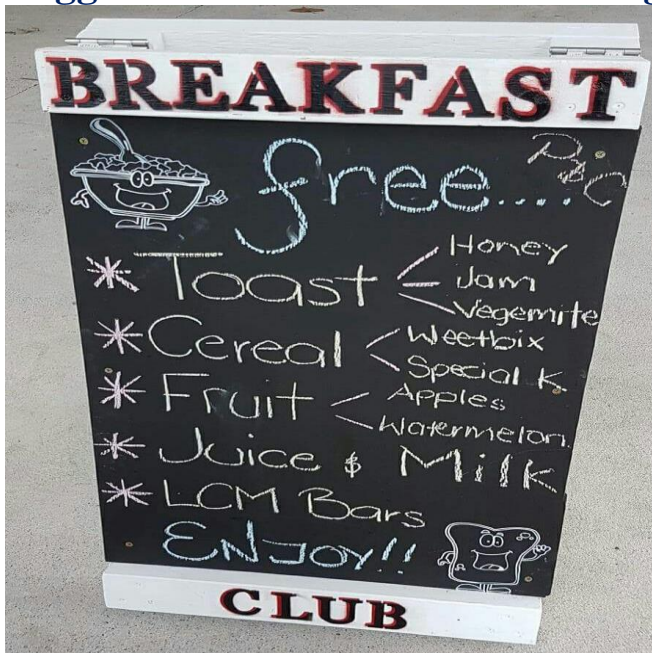 BREAKFAST
free.... P&C
* Toast
Honey
Jam
Vegemite
* Cereal
Weetbix
Special K
* Fruit
Apples
Watermelon
* Juice & Milk
* LCM Bars
ENJOY!!
CLUB